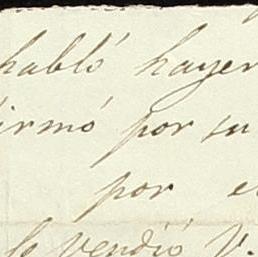 habló hayer
irmó por su
por e
le vendió V.